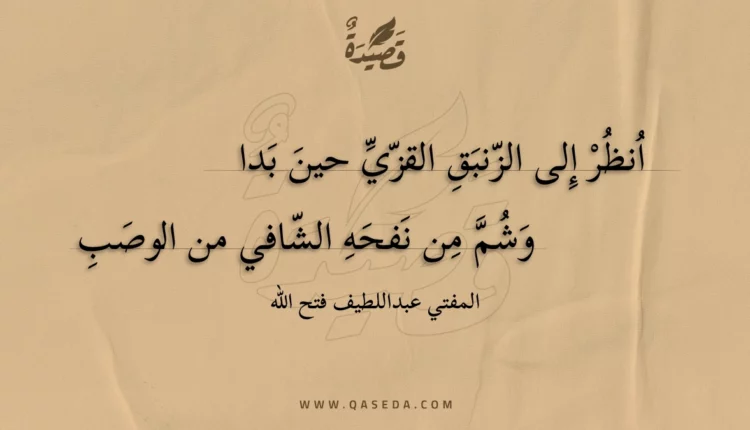 قَصِيدَةٌ
اُنظُرْ إِلى الزّنبَقِ القزّيِّ حينَ بَدا
وَشُمَّ مِن نَفحَهِ الشّافي من الوصَبِ
المفتي عبداللطيف فتح الله
WWW.QASEDA.COM